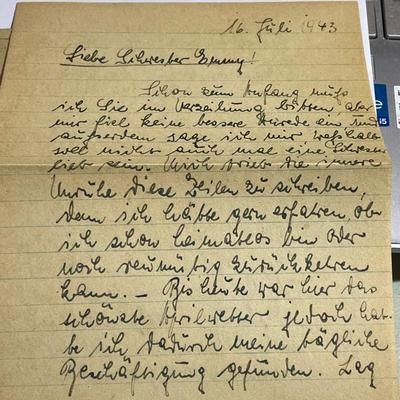 16. Juli 1943
Liebe Schwester Emmy!
Schon zum Anfang muß
ich Sie um Verzeihung bitten, aber
mir fiel keine bessere Anrede ein. Und
außerdem sage ich mir weshalb
soll nicht auch mal eine Schwester
lieb sein. Mich trieb die innere
Unruhe diese Zeilen zu schreiben,
denn ich hätte gern erfahren, ob
ich schon heimatlos bin oder
noch reumütig zurückkehren
kann. – Bis heute war hier das
schönste Aprilwetter jedoch hat-
te ich dadurch meine tägliche
Beschäftigung gefunden. Lag